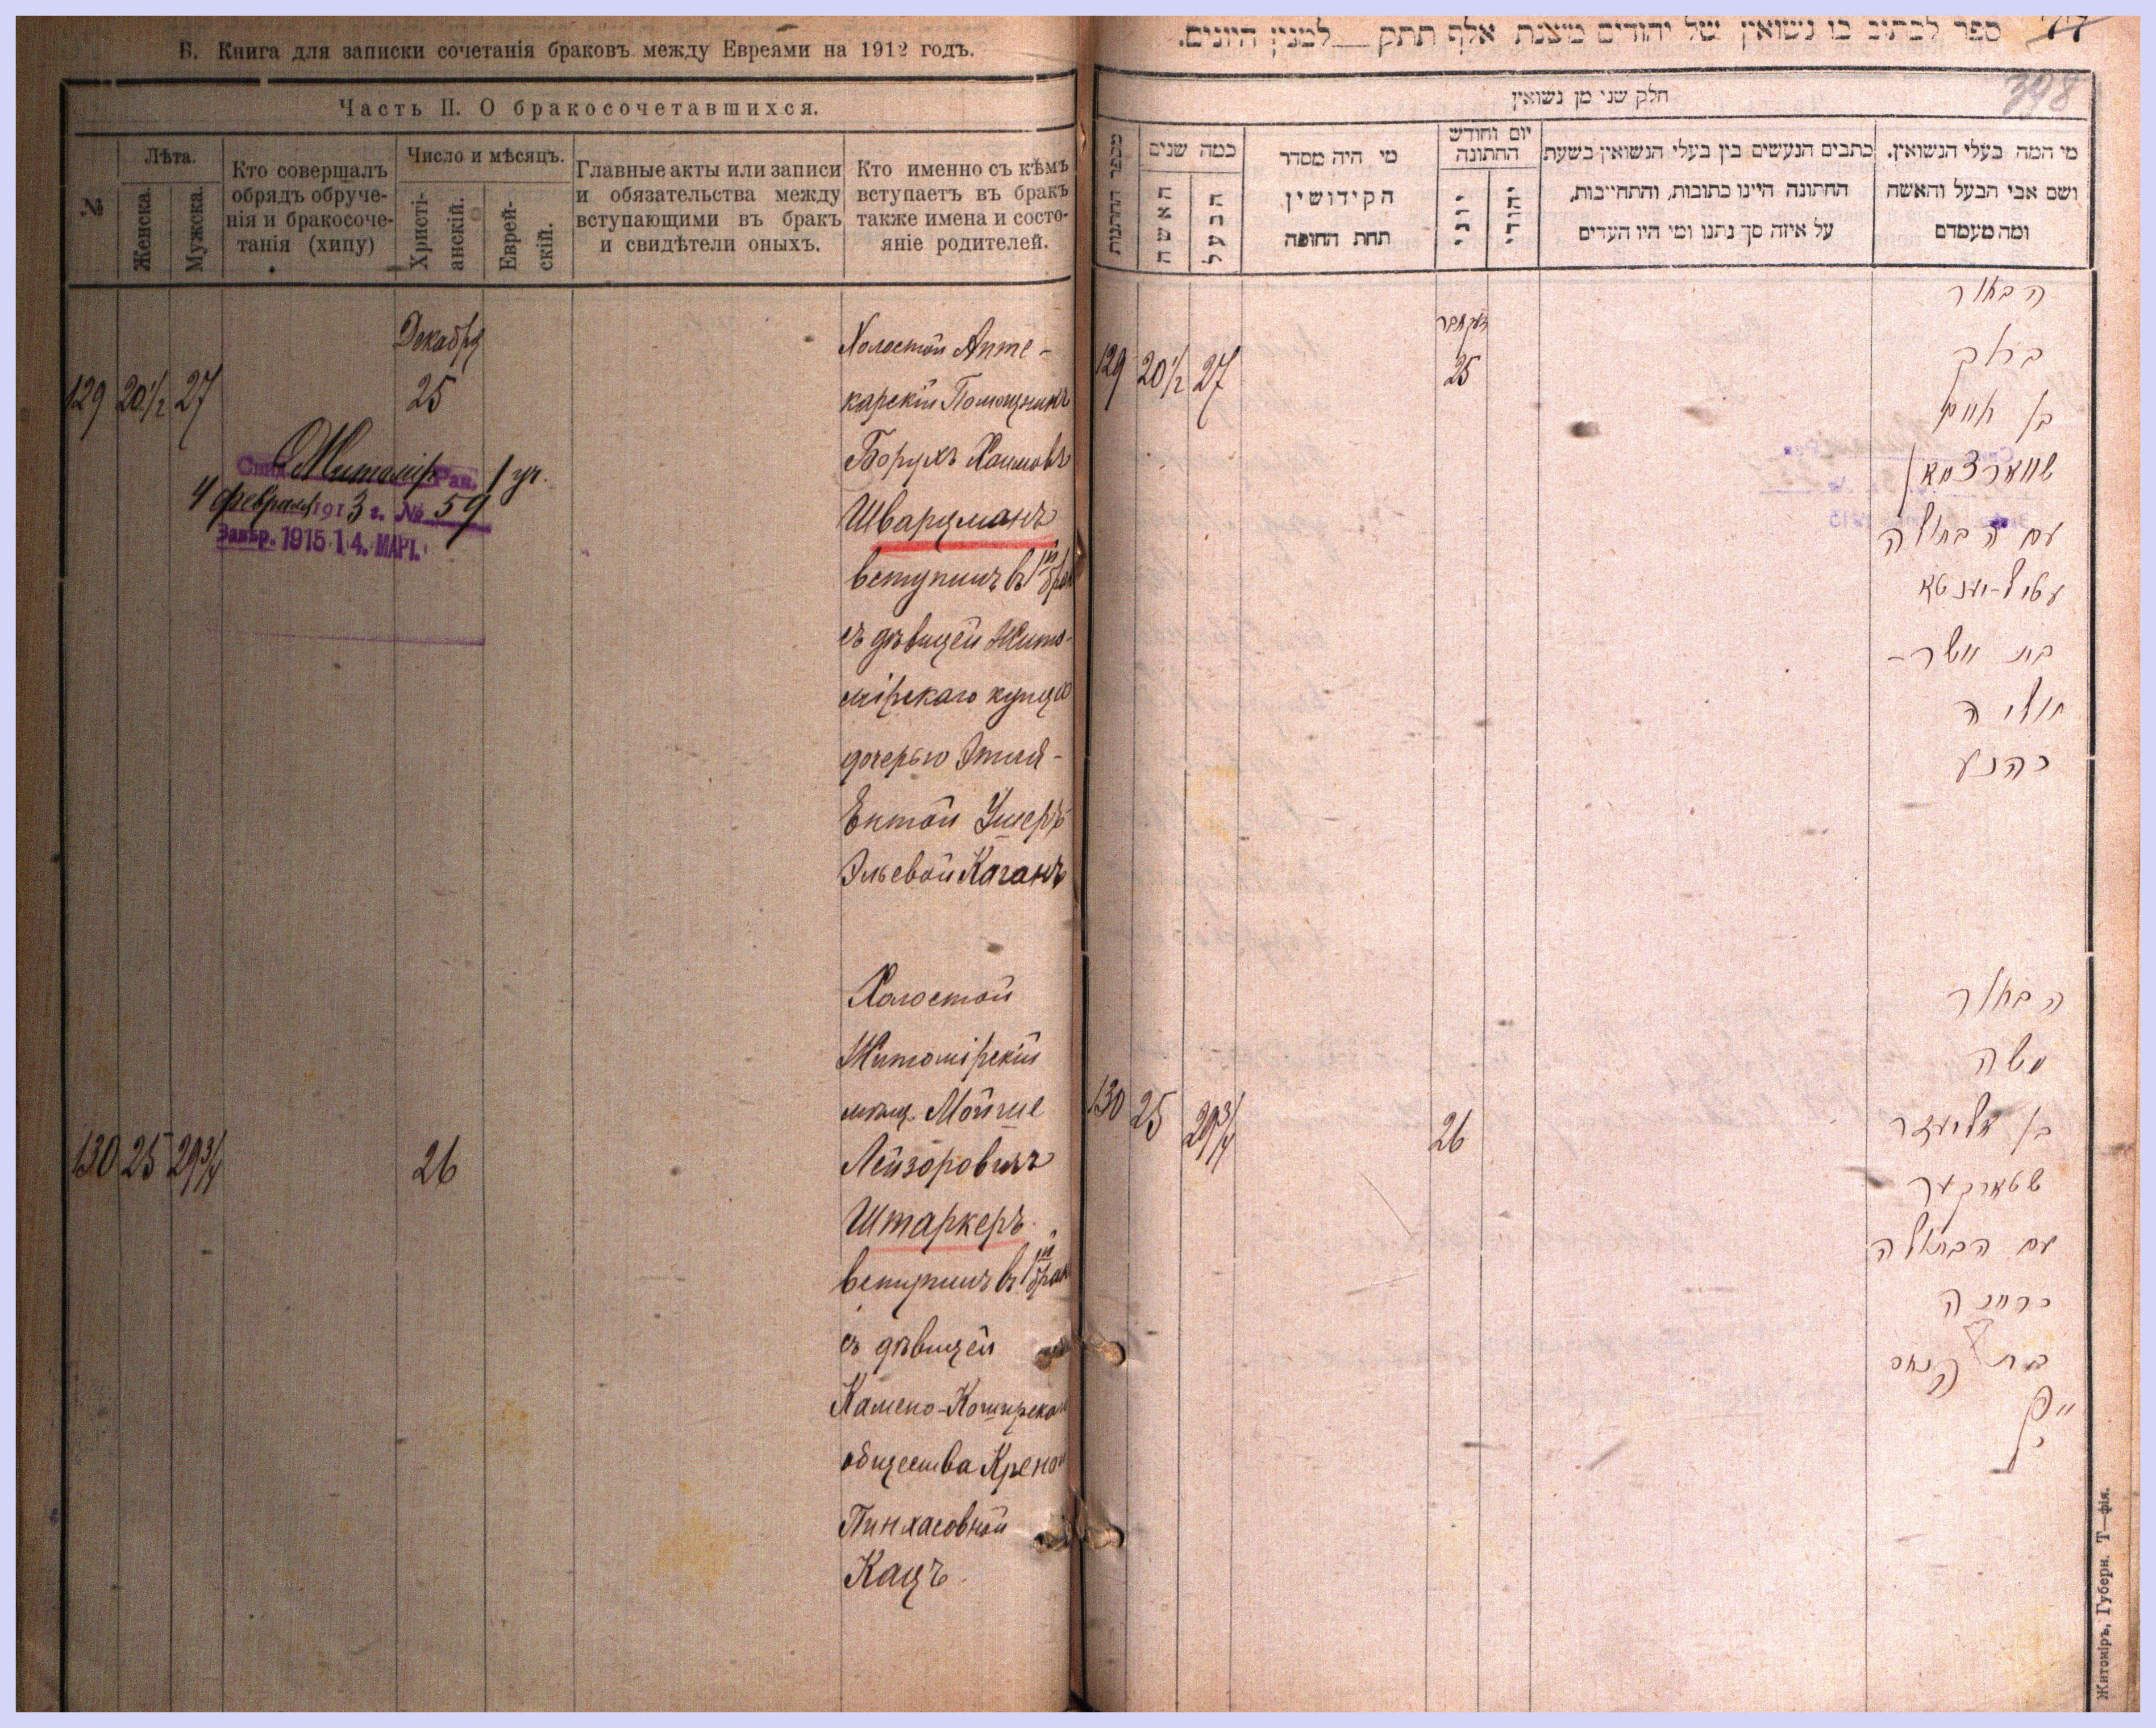 Б. Книга для записки сочетанія браковъ между Евреями на 1912 годъ.
Часть II. О бракосочетавшихся.
№
Лѣта.
Женска.
Мужска.
Кто совершалъ
обрядъ обруче-
нія и бракосоче-
танія (хипу)
Число и мѣсяцъ.
Христі-
анскій.
Еврей-
скій.
Главные акты или записи
и обязательства между
вступающими въ бракъ
и свидѣтели оныхъ.
Кто именно съ кѣмъ
вступаетъ въ бракъ
также имена и состо-
яніе родителей.
Декабря
129 20½ 27 25
Холостой Апте-
карскій Помощникъ
Борухъ Хаимовъ
Шварцманъ
вступилъ въ 1й бракъ
съ дѣвицей Жито-
мірскаго купца
дочерью Этлей-
Ентой Ушеръ
Эльевой Каганъ
Житомір. Рав. 1 уч.
4 февраля 1913 г. № 59
Завѣр. 1915 14. МАРТ.
130 25 29¾ 26
Холостой
Житомірскій
мѣщ. Мойше
Лейзоровичъ
Штаркеръ
вступилъ въ 1й бракъ
съ дѣвицей
Камено-Коширскаго
общества Крейной
Пинхасовной
Кацъ.
ספר לכתוב בו נשואין של יהודים משנת אלף תתק למנין היונים.
398
חלק שני מן נשואין
מספר החתונות
כמה שנים
האשה
הבעל
מי היה מסדר
הקידושין
תחת החופה
יום וחודש
החתונה
יוני
יהודי
כתבים הנעשים בין בעלי הנשואין בשעת
החתונה היינו כתובות, והתחייבות,
על איזה סך נתנו ומי היו העדים
מי המה בעלי הנשואין.
ושם אבי הבעל והאשה
ומה מעמדם
129 20½ 27
דעקאבר
25
הבחור
ברוך
בן חיים
שווארצמאן
עם הבתולה
עטיל-יענטא
בת אשר-
אליה
כהנע
130 25 29¾ 26
הבחור
משה
בן אליעזר
שטארקער
עם הבתולה
קריינה
בת פנחס
כץ
Житоміръ, Губерн. Т—фія.